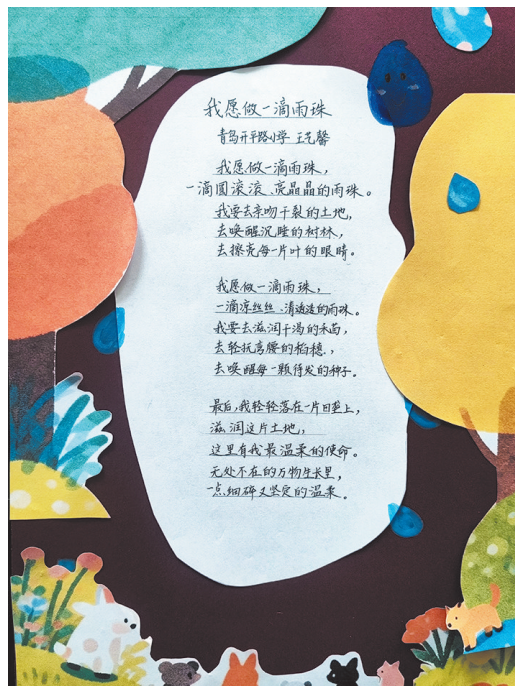 我愿做一滴雨珠
青岛开平路小学 王艺馨
我愿做一滴雨珠,
一滴圆滚滚、亮晶晶的雨珠。
我要去亲吻干裂的土地,
去唤醒沉睡的树林,
去擦亮每一片叶的眼睛。
我愿做一滴雨珠,
一滴凉丝丝、清透透的雨珠。
我要去滋润干渴的禾苗,
去轻抚弯腰的稻穗,
去唤醒每一颗待发的种子。
最后,我轻轻落在一片田垄上,
滋润这片土地,
这里有我最温柔的使命。
无处不在的万物生长里,
一点细碎又坚定的温柔。